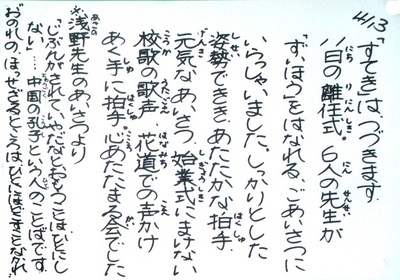 4/13
「すてき」は、つづきます。
11日の離任式。6人の先生が
「ずいほう」をはなれる、ごあいさつに
いらっしゃいました。しっかりとした
姿勢できき、あたたかな拍手。
元気なあいさつ。始業式にまけない
校歌の歌声 花道での声かけ
あく手に拍手 心あたたまる会でした
※浅野先生のあいさつより
「じぶんがされていやだなとおもうことはひとにし
ない…中国の孔子という人のことばです。
おのれの、ほっせざるところはひとにほどこすことなかれ